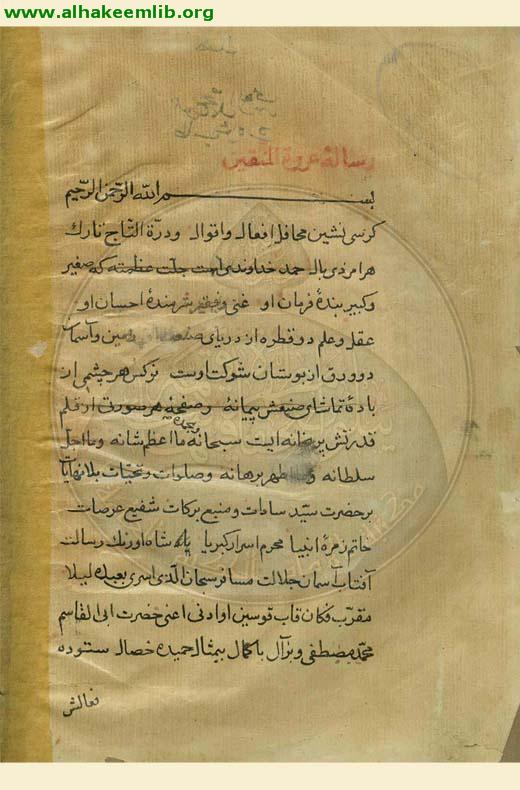 www.alhakeemlib.org
رساله عروة المتقین
بسم الله الرحمن الرحیم
کرسی نشین محافل افعال و اقوال و درة التاج تارک
هر امر ذی بال حمد خداوندی است جلت عظمته که صغیر
و کبیر بندهٔ فرمان او غنی و فقیر شرمندهٔ احسان او
عقل و علم دو قطره از دریای زمین و آسمان
دو ورق از بوستان شوکت اوست نرکس هر چشمی از
بادهٔ تماشای صنعش پیمانهٔ و صفحهٔ هر صورتی از قلم
قدرتش ایست سبحانه ما اعظم شانه و ما اجل
سلطانه و ما اظهر برهانه و صلوات و تحیّات بلا نهایات
بر حضرت سیّد سادات و منبع برکات شفیع عرصات
خاتم زمرهٔ انبیا محرم اسرار کبریا شاه اورنک رسالت
آفتاب آسمان جلالت مسافر سبحان الذی اسری بعبده لیلا
مقرّب فکان قاب قوسین او ادنی اعنی حضرت ابی القاسم
محمّد مصطفی و بر آل با کمال بیمثال حمیده خصال ستوده
فعالش